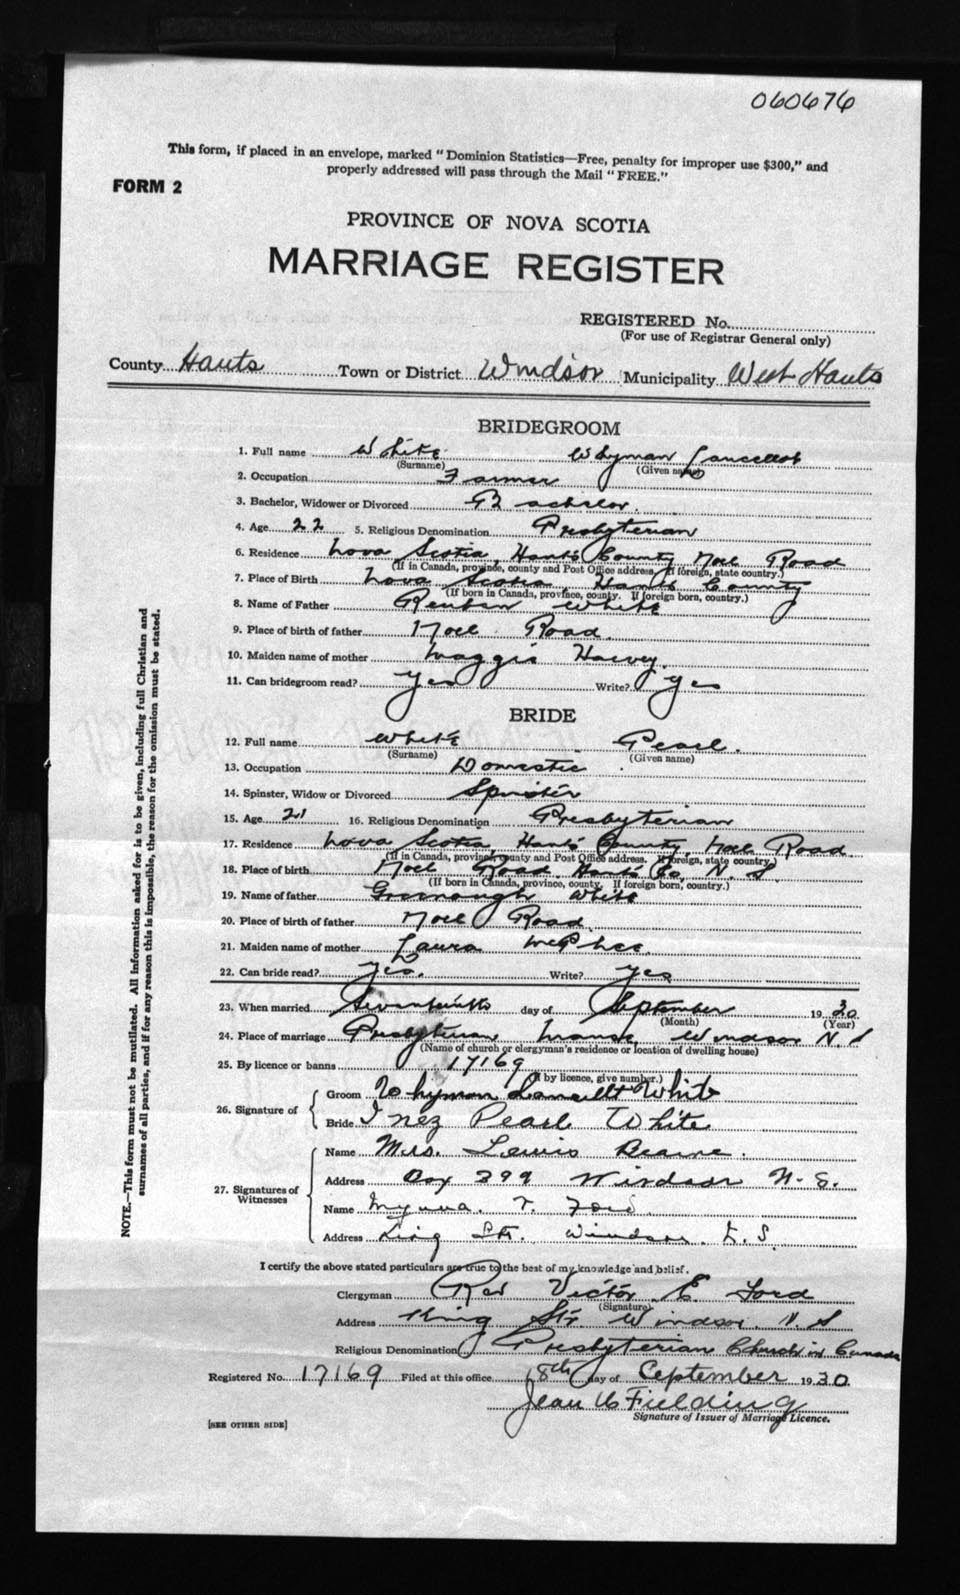 060676
This form, if placed in an envelope, marked "Dominion Statistics—Free, penalty for improper use $300," and
properly addressed will pass through the Mail "FREE."
FORM 2
PROVINCE OF NOVA SCOTIA
MARRIAGE REGISTER
REGISTERED No.
(For use of Registrar General only)
County Hants Town or District Windsor Municipality West Hants
BRIDEGROOM
1. Full name White Whyman Lancellot
(Surname) (Given name)
2. Occupation Farmer
3. Bachelor, Widower or Divorced Bachelor.
4. Age 22 5. Religious Denomination Presbyterian
6. Residence Nova Scotia, Hants County Noel Road
(If in Canada, province, county and Post Office address. If foreign, state country.)
7. Place of Birth Nova Scotia Hants County
(If born in Canada, province, county. If foreign born, country.)
8. Name of Father Reuben White
9. Place of birth of father Noel Road.
10. Maiden name of mother Maggie Harvey.
11. Can bridegroom read? Yes Write? Yes
BRIDE
12. Full name White Pearl.
(Surname) (Given name)
13. Occupation Domestic
14. Spinster, Widow or Divorced Spinster
15. Age 21 16. Religious Denomination Presbyterian
17. Residence Nova Scotia, Hants County, Noel Road
(If in Canada, province, county and Post Office address. If foreign, state country.)
18. Place of birth Noel Road Hants Co, N. S.
(If born in Canada, province, county. If foreign born, country.)
19. Name of father White
20. Place of birth of father Noel Road.
21. Maiden name of mother Laura McPhee.
22. Can bride read? yes. Write? yes
23. When married Seventeenth day of September 1930
(Month) (Year)
24. Place of marriage Presbyterian Manse, Windsor N. S
(Name of church or clergyman's residence or location of dwelling house)
25. By licence or banns 17169
(If by licence, give number.)
26. Signature of
Groom Whyman Lancellt White
Bride Inez Pearl White
27. Signatures of Witnesses
Name Mrs. Lewis
Address Box 399 Windsor N. S.
Name Myrna. T. Ford
Address King Str. Windsor. N. S.
I certify the above stated particulars are true to the best of my knowledge and belief.
Clergyman Rev Victor E. Ford
(Signature)
Address King Str. Windsor. N. S
Religious Denomination Presbyterian Church in Canada
Registered No. 17169 Filed at this office 18th day of September 1930
Jean U Fielding
Signature of Issuer of Marriage Licence.
[SEE OTHER SIDE]
NOTE.—This form must not be mutilated. All information asked for is to be given, including full Christian and
surnames of all parties, and if for any reason this is impossible, the reason for the omission must be stated.